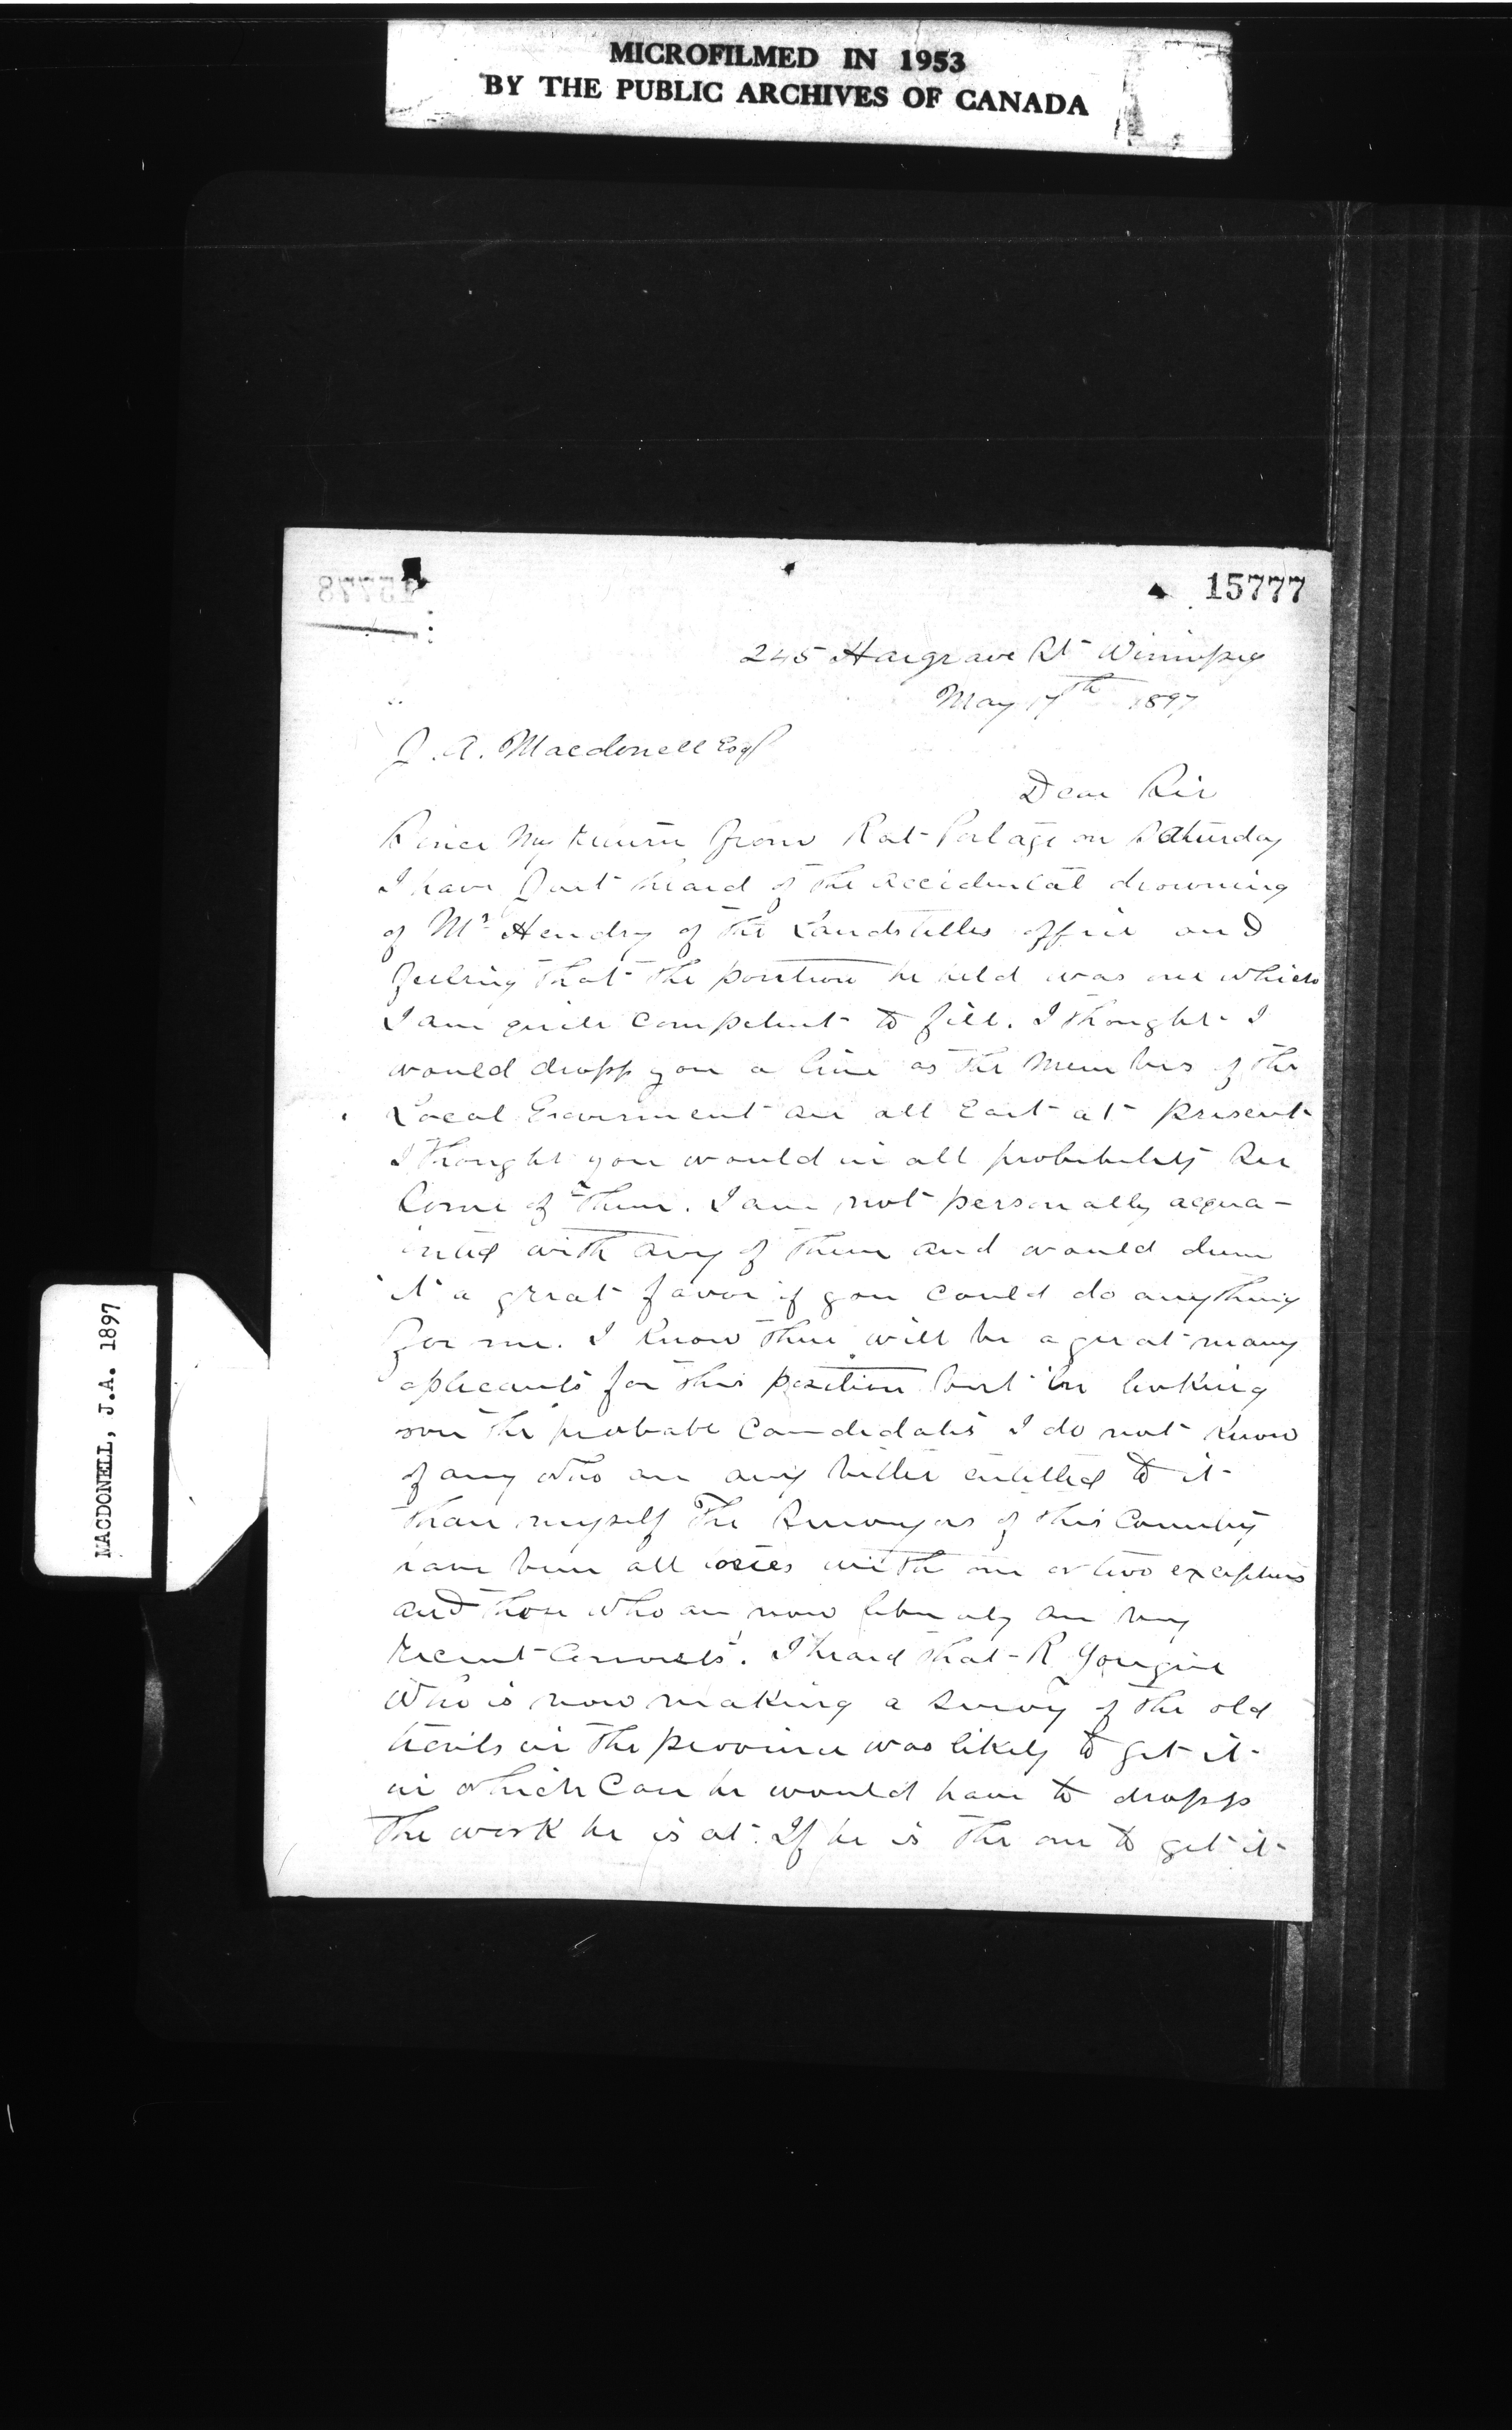 MICROFILMED IN 1953
BY THE PUBLIC ARCHIVES OF CANADA
15777
15778
245 Hargrave St Winnipeg
May 17th 1897
J. A. Macdonell Esq
Dear Sir
Since my return from Rat Portage on Saturday
I have just heard of the accidental drowning
of Mr Hendry of the Landstitles office and
feeling that the position he held was one which
I am quite competent to fill. I thought I
would dropp you a line as the Members of the
Local Goverment are all East at present
I thought you would in all probibility see
some of them. I am not personally acqua-
inted with any of them and would deem
it a great favor if you could do anything
for me. I know there will be a great many
aplicants for this position but in looking
over the probable candidates I do not know
of any who are any better entitled to it
than myself The Surveyors of this Country
have been all tories with one or two exceptions
and those who are now liberals are very
recent converts. I heard that R
who is now making a survey of the old
trails in the province was likely to get it
in which case he would have to dropp
the work he is at. If he is the one to get it
MACDONELL, J.A. 1897